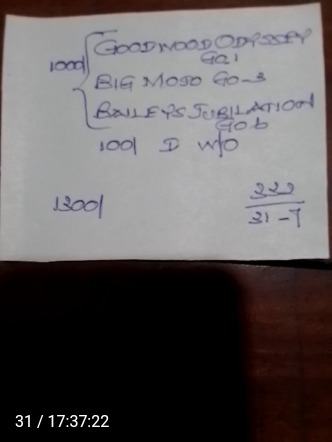 1000/ GOODWOOD ODYSSEY
Go, 1
BIG MOJO Go-3
BAILEYS JUBILATION
Go. 6
100/ D W/O
1300/
222
31-7
31 / 17:37:22